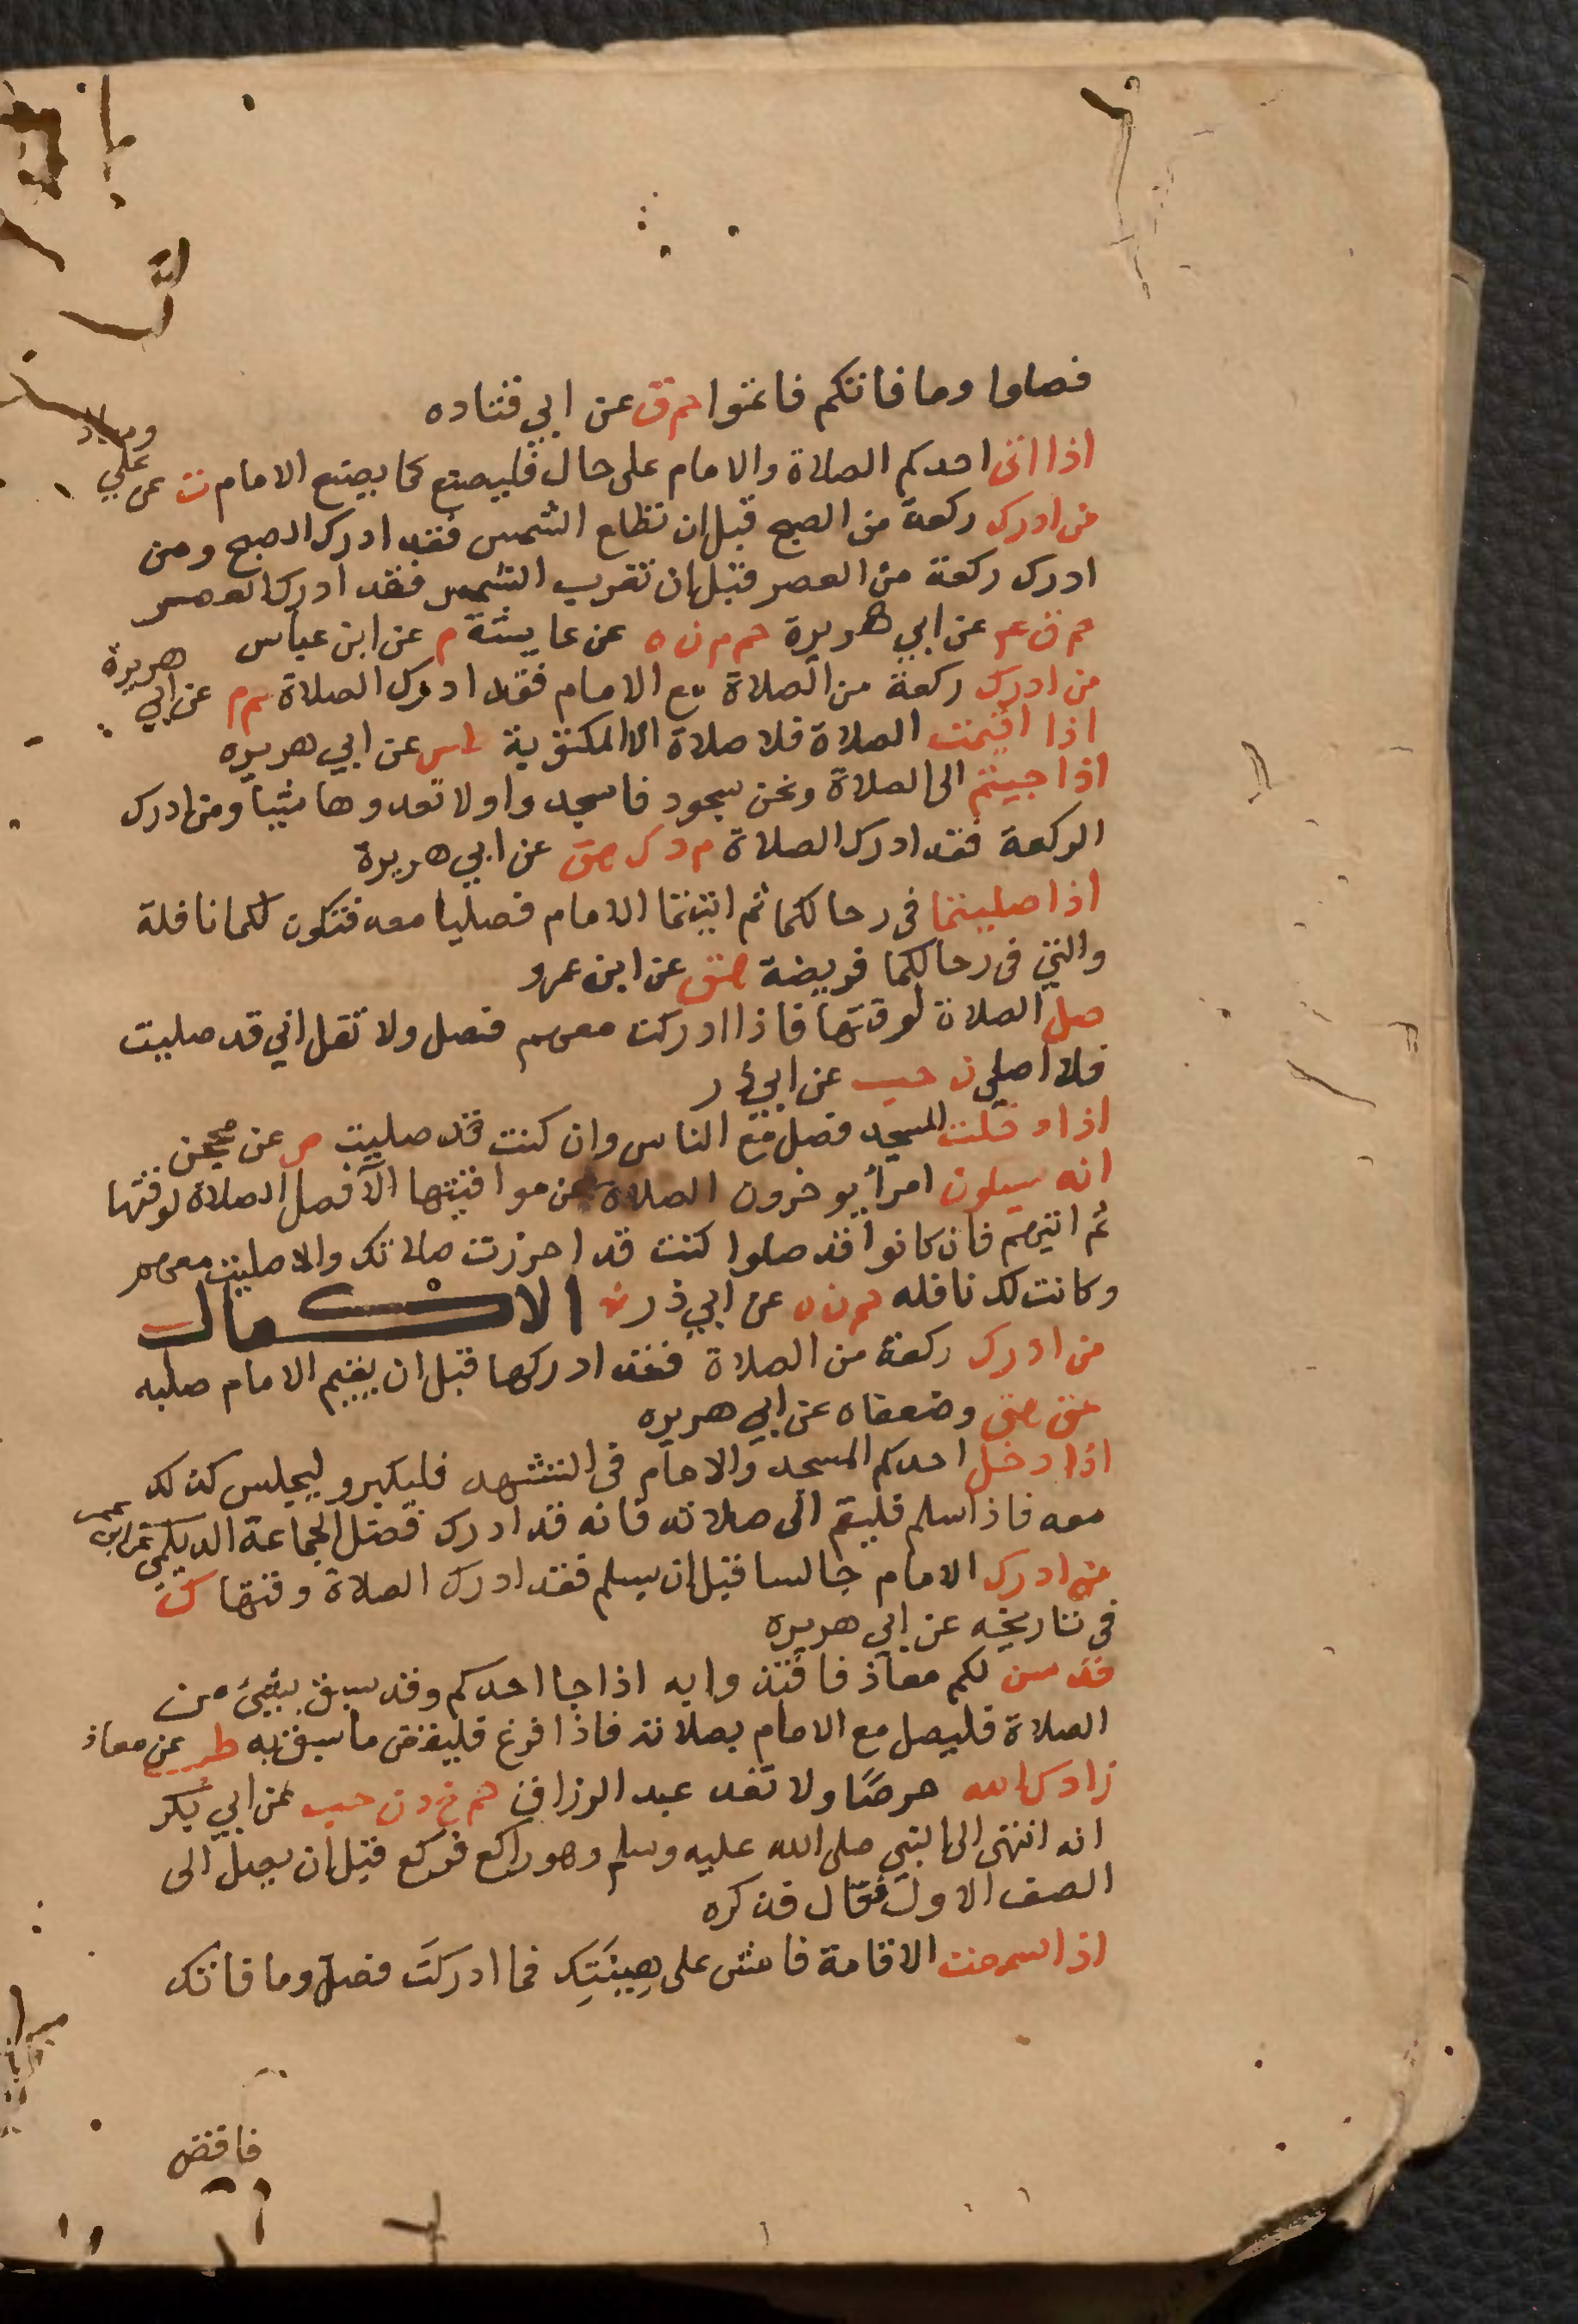 فصلوا وما فاتكم فاتموا حم ق عن ابي قتاده
اذا اتى احدكم الصلاة والامام على حال فليصنع كما يصنع الامام ت عن علي
من ادرك ركعة من الصبح قبل ان تطلع الشمس فقد ادرك الصبح ومن
ادرك ركعة من العصر قبل ان تغرب الشمس فقد ادرك العصر
حم ق عه عن ابي هريرة حم م ن ه عن عايشة م عن ابن عباس
من ادرك ركعة من الصلاة مع الامام فقد ادرك الصلاة م عن ابي هريرة
اذا اقيمت الصلاة فلا صلاة الا المكتوبة طس عن ابي هريره
اذا جيتم الى الصلاة ونحن سجود فاسجدوا ولا تعدوها شيا ومن ادرك
الركعة فقد ادرك الصلاة م د ك هق عن ابي هريرة
اذا صليتما في رحالكما ثم اتيتما الامام فصليا معه فتكون لكما نافلة
والتي في رحالكما فريضة هق عن ابن عمرو
صل الصلاة لوقتها فاذا ادركت معهم فصل ولا تقل اني قد صليت
فلا اصلي ن حب عن ابي ذر
اذا دخلت المسجد فصل مع الناس وان كنت قد صليت ص عن محجن
انه سيكون امرأ يوخرون الصلاة عن مواقيتها الا فصل الصلاة لوقتها
ثم اتيهم فان كانوا قد صلوا كنت قد احرزت صلاتك والا صليت معهم
وكانت لك نافله حم ن ه عن ابي ذر الاكمال
من ادرك ركعة من الصلاة فقد ادركها قبل ان يقيم الامام صلبه
عق هق وضعفاه عن ابي هريره
اذا دخل احدكم المسجد والامام في التشهد فليكبر وليجلس كذلك
معه فاذا سلم فليقم الى صلاته فانه قد ادرك فضل الجماعة الديلمي عن ابن عمر
من ادرك الامام جالسا قبل ان يسلم فقد ادرك الصلاة وقتها ك
في تاريخه عن ابي هريره
قد سن لكم معاذ فاقتدوا به اذا جا احدكم وقد سبق بشيئ من
الصلاة فليصل مع الامام بصلاته فاذا فرغ فليقض ما سبق به طب عن معاذ
زادك الله حرصًا ولا تعد عبد الرزاق حم خ د ن حب عن ابي بكر
انه انتهى الى النبي صلى الله عليه وسلم وهو راكع فركع قبل ان يصل الى
الصف الاول فقال فذكره
اذا سمعت الاقامة فامش على هيئتك فما ادركت فصل وما فاتك
فاقض